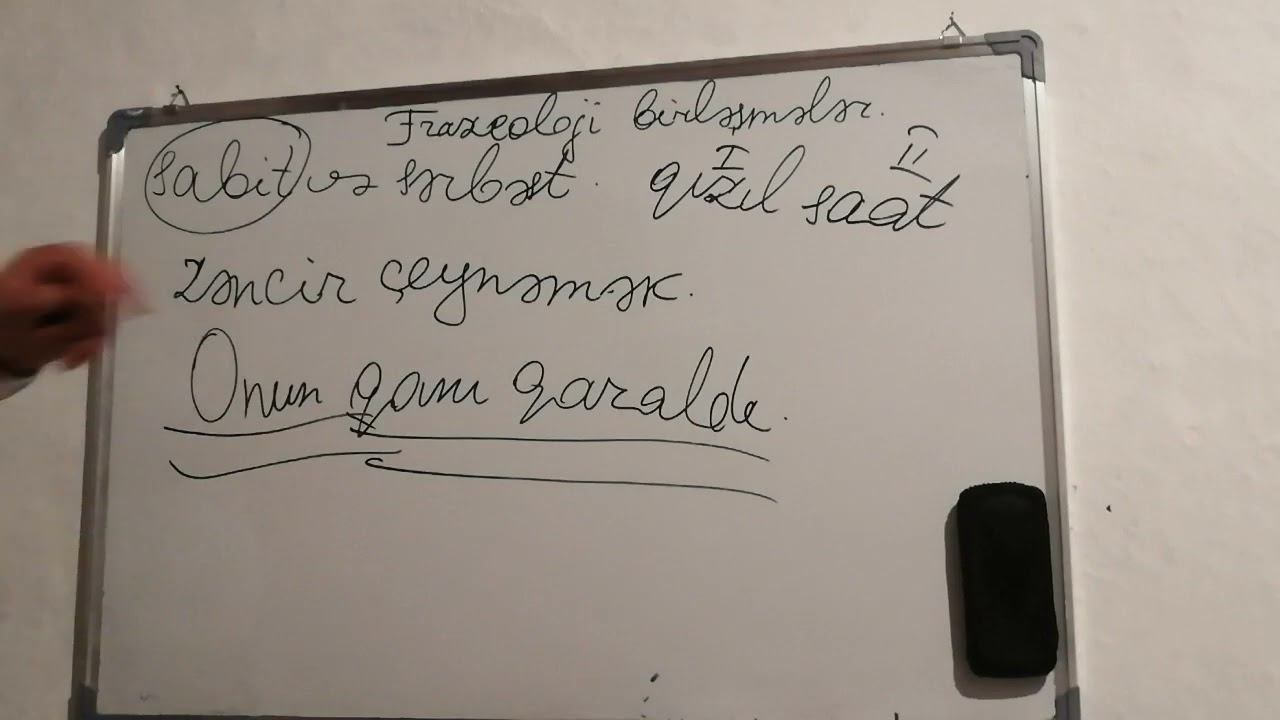 Frazeoloji birləşmələr.
sabit və sərbəst. qızıl saat
I II
zəncir çeynəmək.
Onun qanı qaraldı.